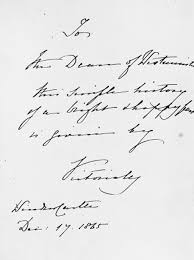 To
the Dean of Westminster
this simple history
of a bright & happy
is given by
Victoria R
Windsor Castle
Dec: 17. 1865